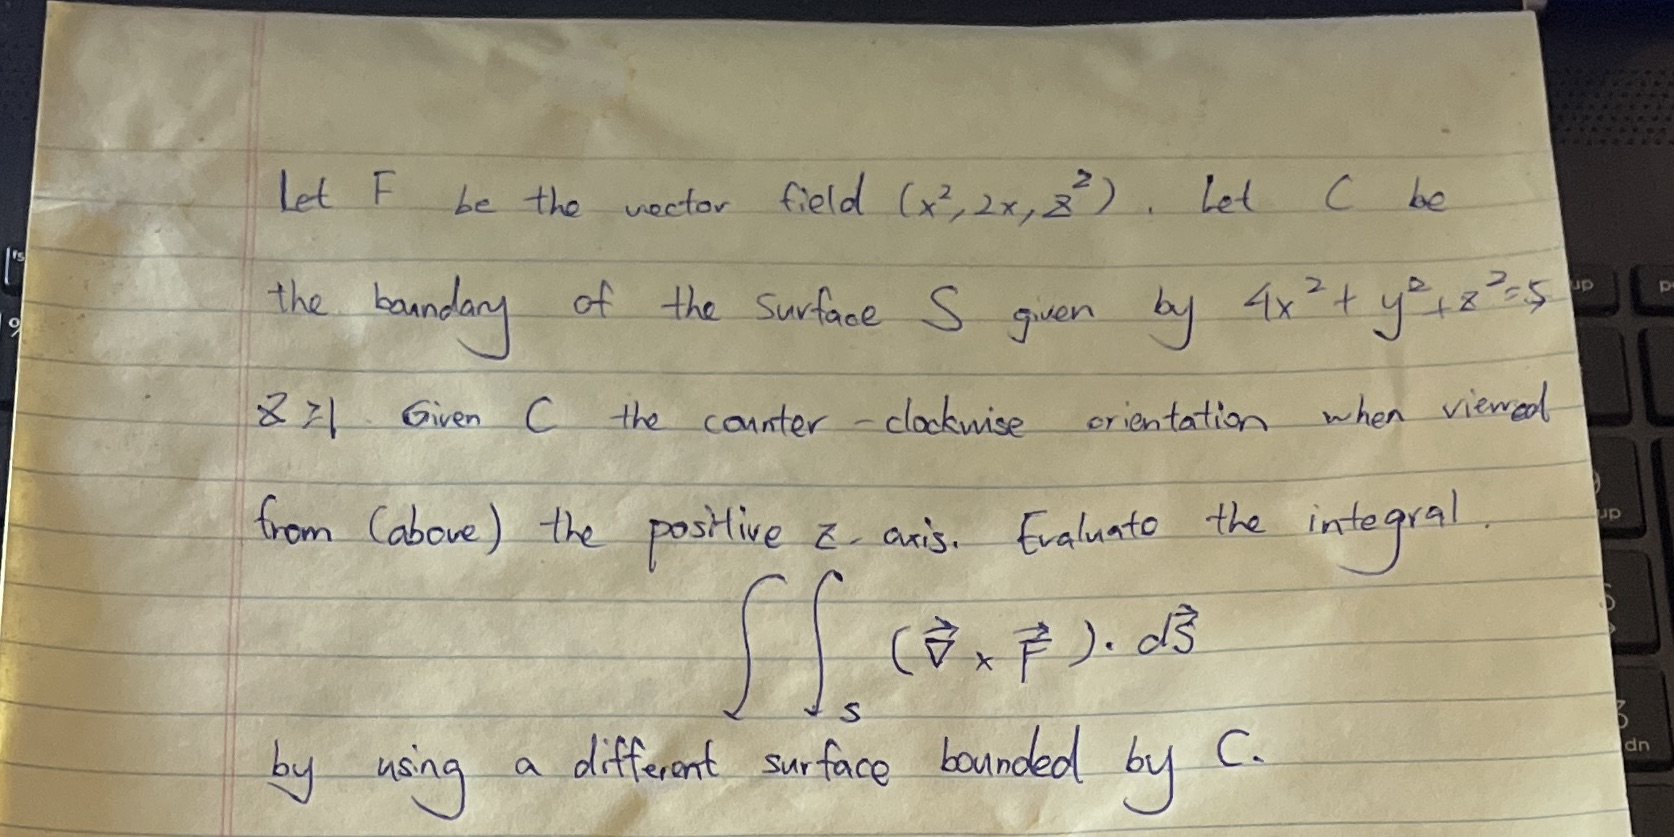 Let F be the vector field (x², 2x, z²). Let C be
the boundary of the surface S given by 4x² + y² + z² = 5
z ≥ 1. Given C the counter-clockwise orientation when viewed
from (above) the positive z-axis. Evaluate the integral.
∫∫_S (∇⃗ × F⃗) · dS⃗
by using a different surface bounded by C.